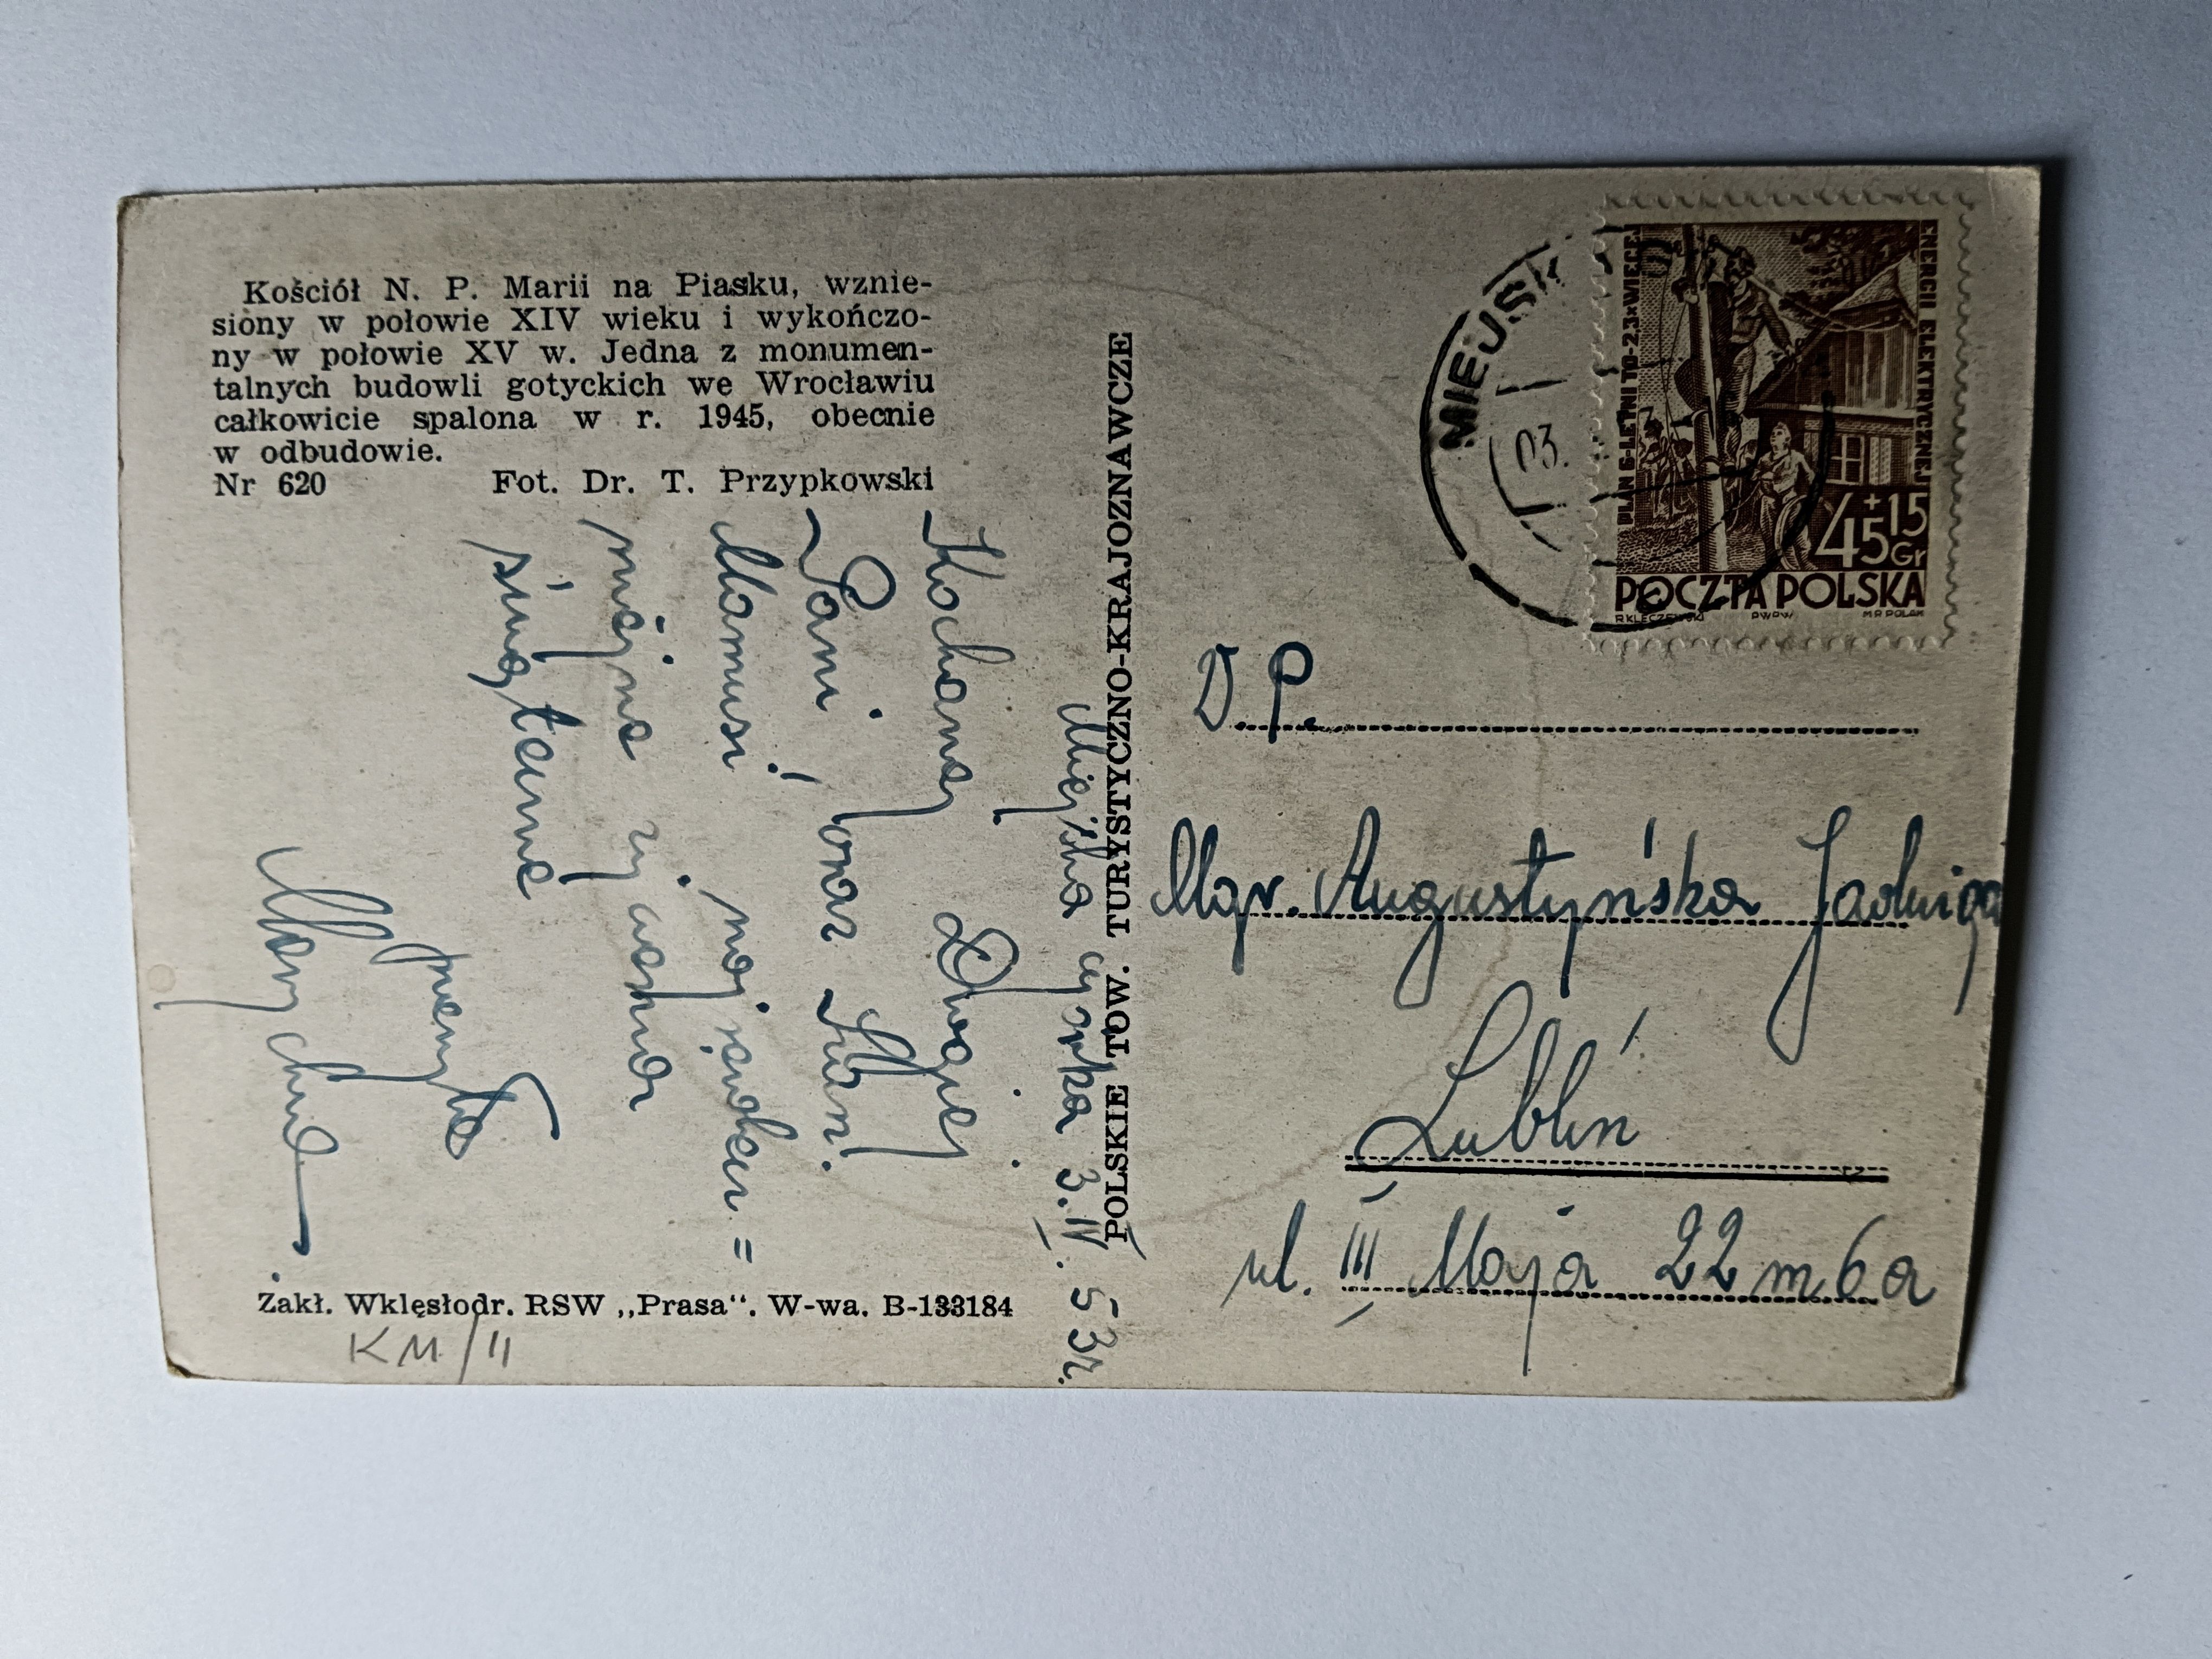 Kościół N. P. Marii na Piasku, wznie-
siony w połowie XIV wieku i wykończo-
ny w połowie XV w. Jedna z monumen-
talnych budowli gotyckich we Wrocławiu
całkowicie spalona w r. 1945, obecnie
w odbudowie.
Nr 620 Fot. Dr. T. Przypkowski
Miejska Górka 3.IV.53r.
Kochanej Drogiej
Pani, oraz Kochan.
Mamusi! najserdecz=
niejsze życzenia
świąteczne
przesyła
Zakł. Wklęsłodr. RSW „Prasa". W-wa. B-133184
KM/II
POLSKIE TOW. TURYSTYCZNO-KRAJOZNAWCZE
MIEJSK
03.
PLAN 6-LETNI TO-2,3×WIĘCEJ
ENERGII ELEKTRYCZNEJ
45+15
Gr
POCZTA POLSKA
R.KLECZEWSKI PWPW M.R.POLAK
W.P.
Mgr. Augustyńska Jadwiga
Lublin
ul. III Maja 22 m 6a